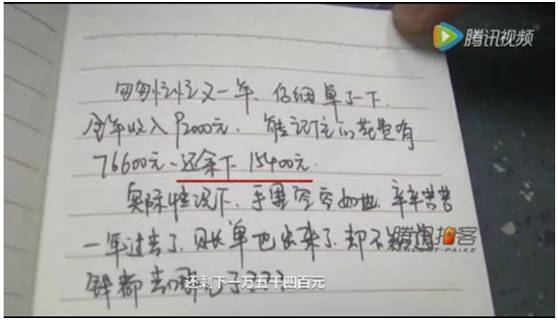 腾讯视频
匆匆忙忙又一年、仔细算了一下
全年收入92000元. 能记住的花费有
76600元、还余下 15400元.
实际情况下、手里空空如也. 辛辛苦苦
一年过去了. 账单也出来了. 却不知道
腾讯拍客
TENCENT-PAIKE
钱都去哪儿了???
还剩下一万五千四百元